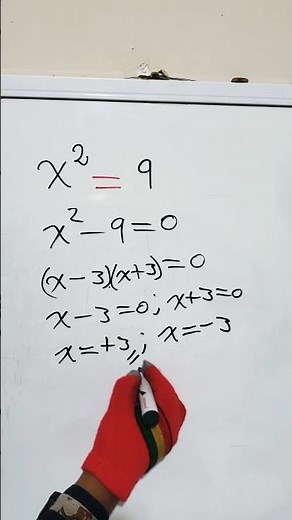 x² = 9
x² - 9 = 0
(x - 3)(x + 3) = 0
x - 3 = 0 ; x + 3 = 0
x = +3 ; x = -3